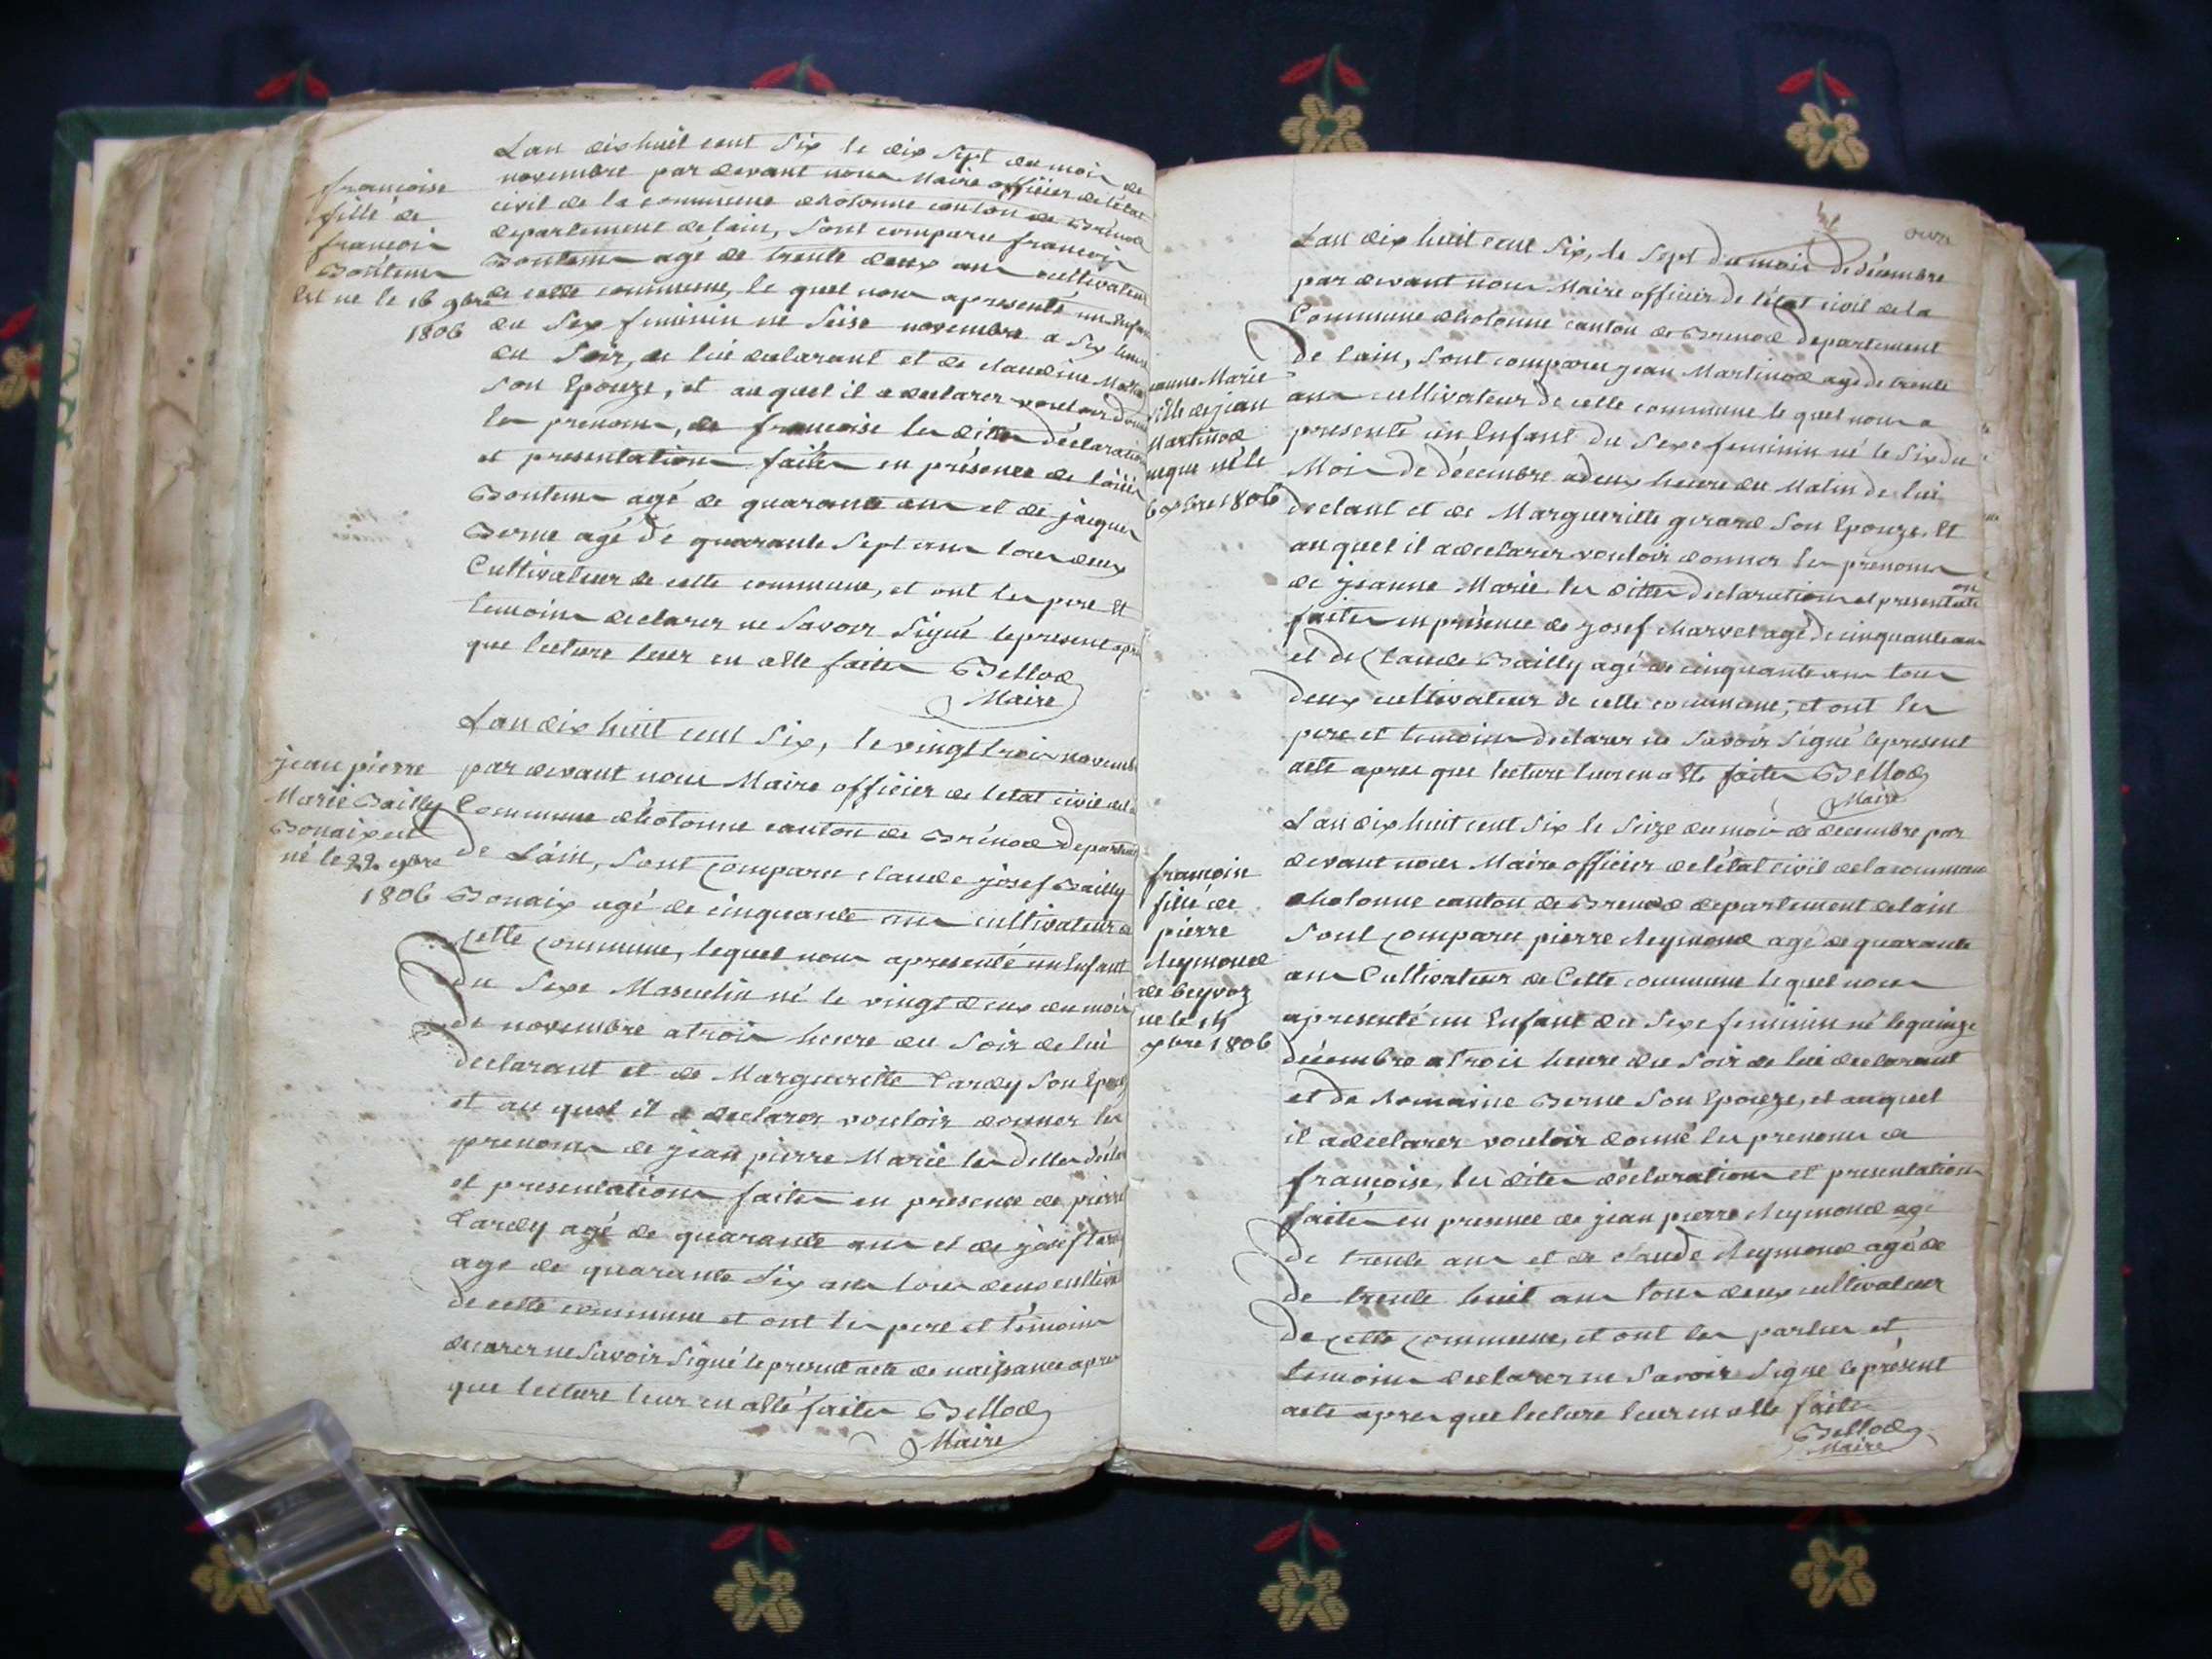 françoise
fille de
françois
Bontems
Est ne le 16 9bre
1806
Lan dix huit cent Six le dix Sept du mois de
novembre par devant nous Maire officier de létat
civil de la commune dhotonne canton de Brénod
departement de lain, Sont comparu françois
Bontems agé de trente deux ans cultivateur
de cette commune, le quel nous apresenté un Enfant
du Sex feminin né Seise novembre a Six heure
du Soir, de lui declarant et de claudine
Son Epouze, et au quel il a declarer vouloir
les prenoms, de françoise les dittes déclaration
et presentations faites en présence de loüis
Bontems agé de quarante ans et de jacques
Berne agé de quarante Sept ans tous deux
Cultivateur de cette commune, et ont les pere Et
temoins declarer ne Savoir Signé le present apres
que lecture leur en atté faites Bellod
Maire
jean pierre
Marie Bailly
Bonaix est
né le 22 9bre
1806
Lan dix huitt cent Six, le vingt trois novembre
par devant nous Maire officier de letat civil de la
Commune dhotonne canton de Brénod departement
de Láin, Sont Comparu claude josef Bailly
Bonaix agé de cinquante ans cultivateur de
Cette Commune, lequel nous apresenté un Enfant
du Sexe Masculin né le vingt deux du mois
de novembre a trois heure du Soir de lui
declarant et de Margueritte Tardy Son Epouze
et au quel il a declarer vouloir donner les
prenoms de jean pierre Marie les dittes
et presentations faites en presence de pierre
Tardy agé de quarante ans et de josef Tardy
agé de quarante Six ans tous deux
de cette commune et ont les pere et témoins
decarer ne Savoir Signé le present acte de naissance apres
que lecture leur en atté faites Bellod
Maire
jeanne Marie
fille de jean
Martinod
né le
6 xbre 1806
Lan dix huit cent Six, le Sept du mois de décembre
par devant nous Maire officier de létat civil de la
Commune dhotonne canton de Brenod departement
de lain, Sont comparu jean Martinod agé de trente
ans cultivateur de cette commune le quel nous a
presenté un Enfant du Sexe feminin né le Six du
Mois de décembre a deux heure du Matin de lui
declant et de Margueritte girard Son Epouze. Et
au quel il a declarer vouloir donner les prenoms
de jeanne Marie les dittes declarations et presentati
on
faites en présence de josef Marvet agé de cinquante ans
et de Claude Bailly agé de cinquante ans tous
deux cultivateur de cette commune, et ont les
pere et temoins declarer ne Savoir Signé le present
acte apres que lecture leur en atté faites Bellod
Maire
françoise
fille de
pierre
Reymond
de
né le 15
xbre 1806
Lan dix huit cent Six le Seize du mois de decembre par
devant nous Maire officier de létat civil de la commune
dhotonne canton de Brenod departement de lain
Sont Comparu pierre Reymond agé de quarante
ans Cultivateur de Cette commune le quel nous
apresenté un Enfant du Sexe feminin né le quinze
décembre a trois heure du Soir de lui declarant
et de Romaine Berne Son Epouze, et auquel
il a declarer vouloir donné les prenoms de
françoise, les dites déclarations et presentations
faites en presence de jean pierre Reymond agé
de trente ans et de claude Reymond agé de
de trente huit ans tous deux cultivateur
de Cette Commune, et ont les parties et
temoins declarer ne Savoir Signé le présent
acte apres que lecture leur en atté faites
Bellod
Maire